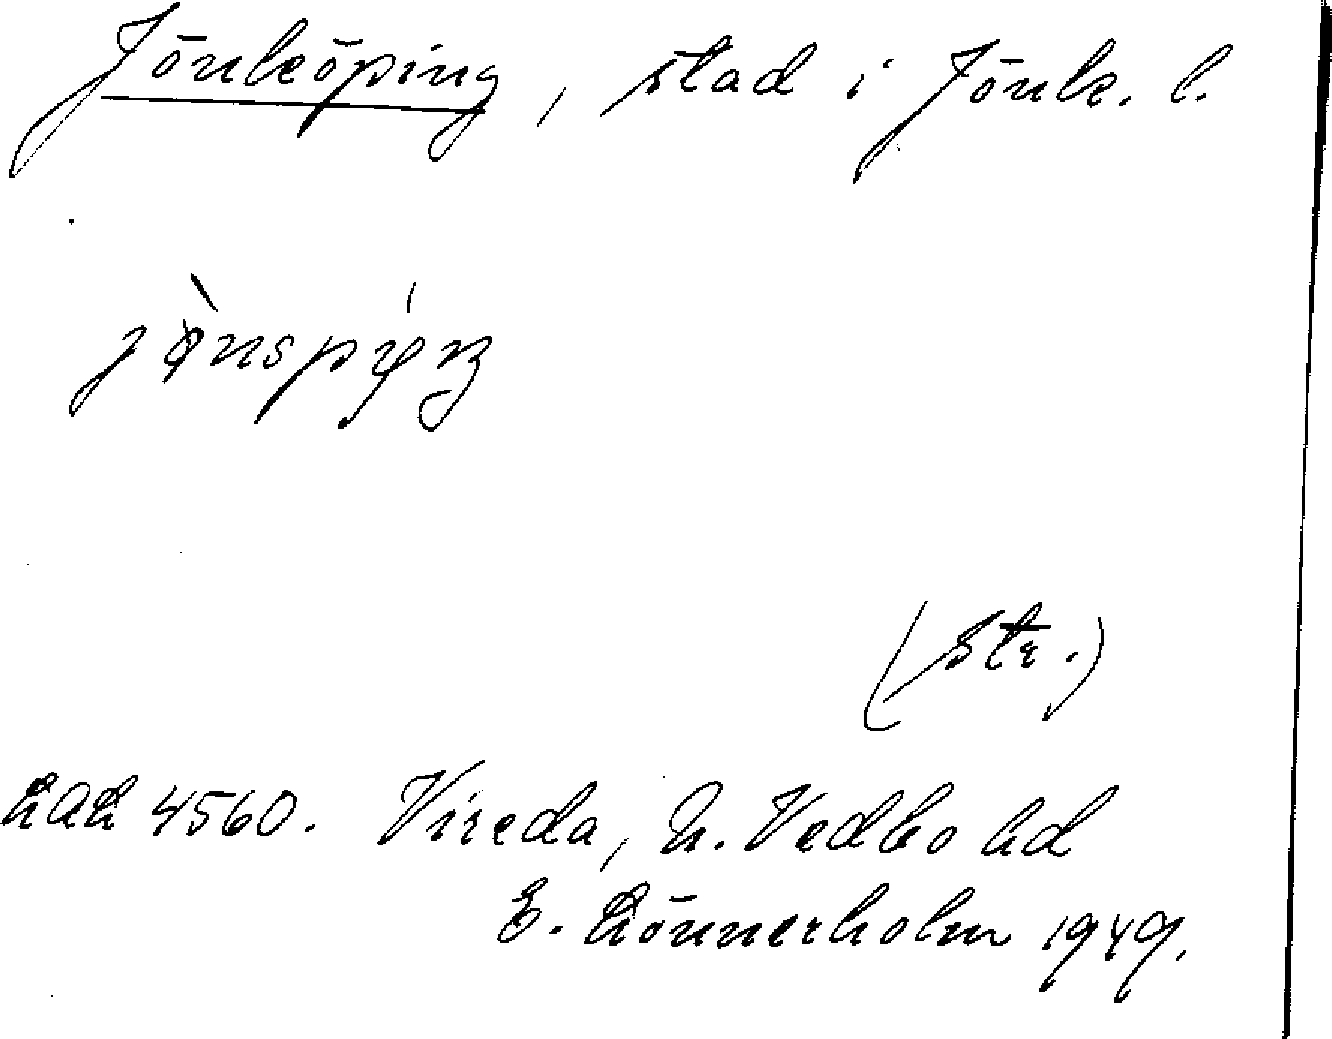 Jönköping, stad i Jönk. l.
(str.)
LAL 4560. Vireda, N. Vedbo hd
E. Lönnerholm 1949.